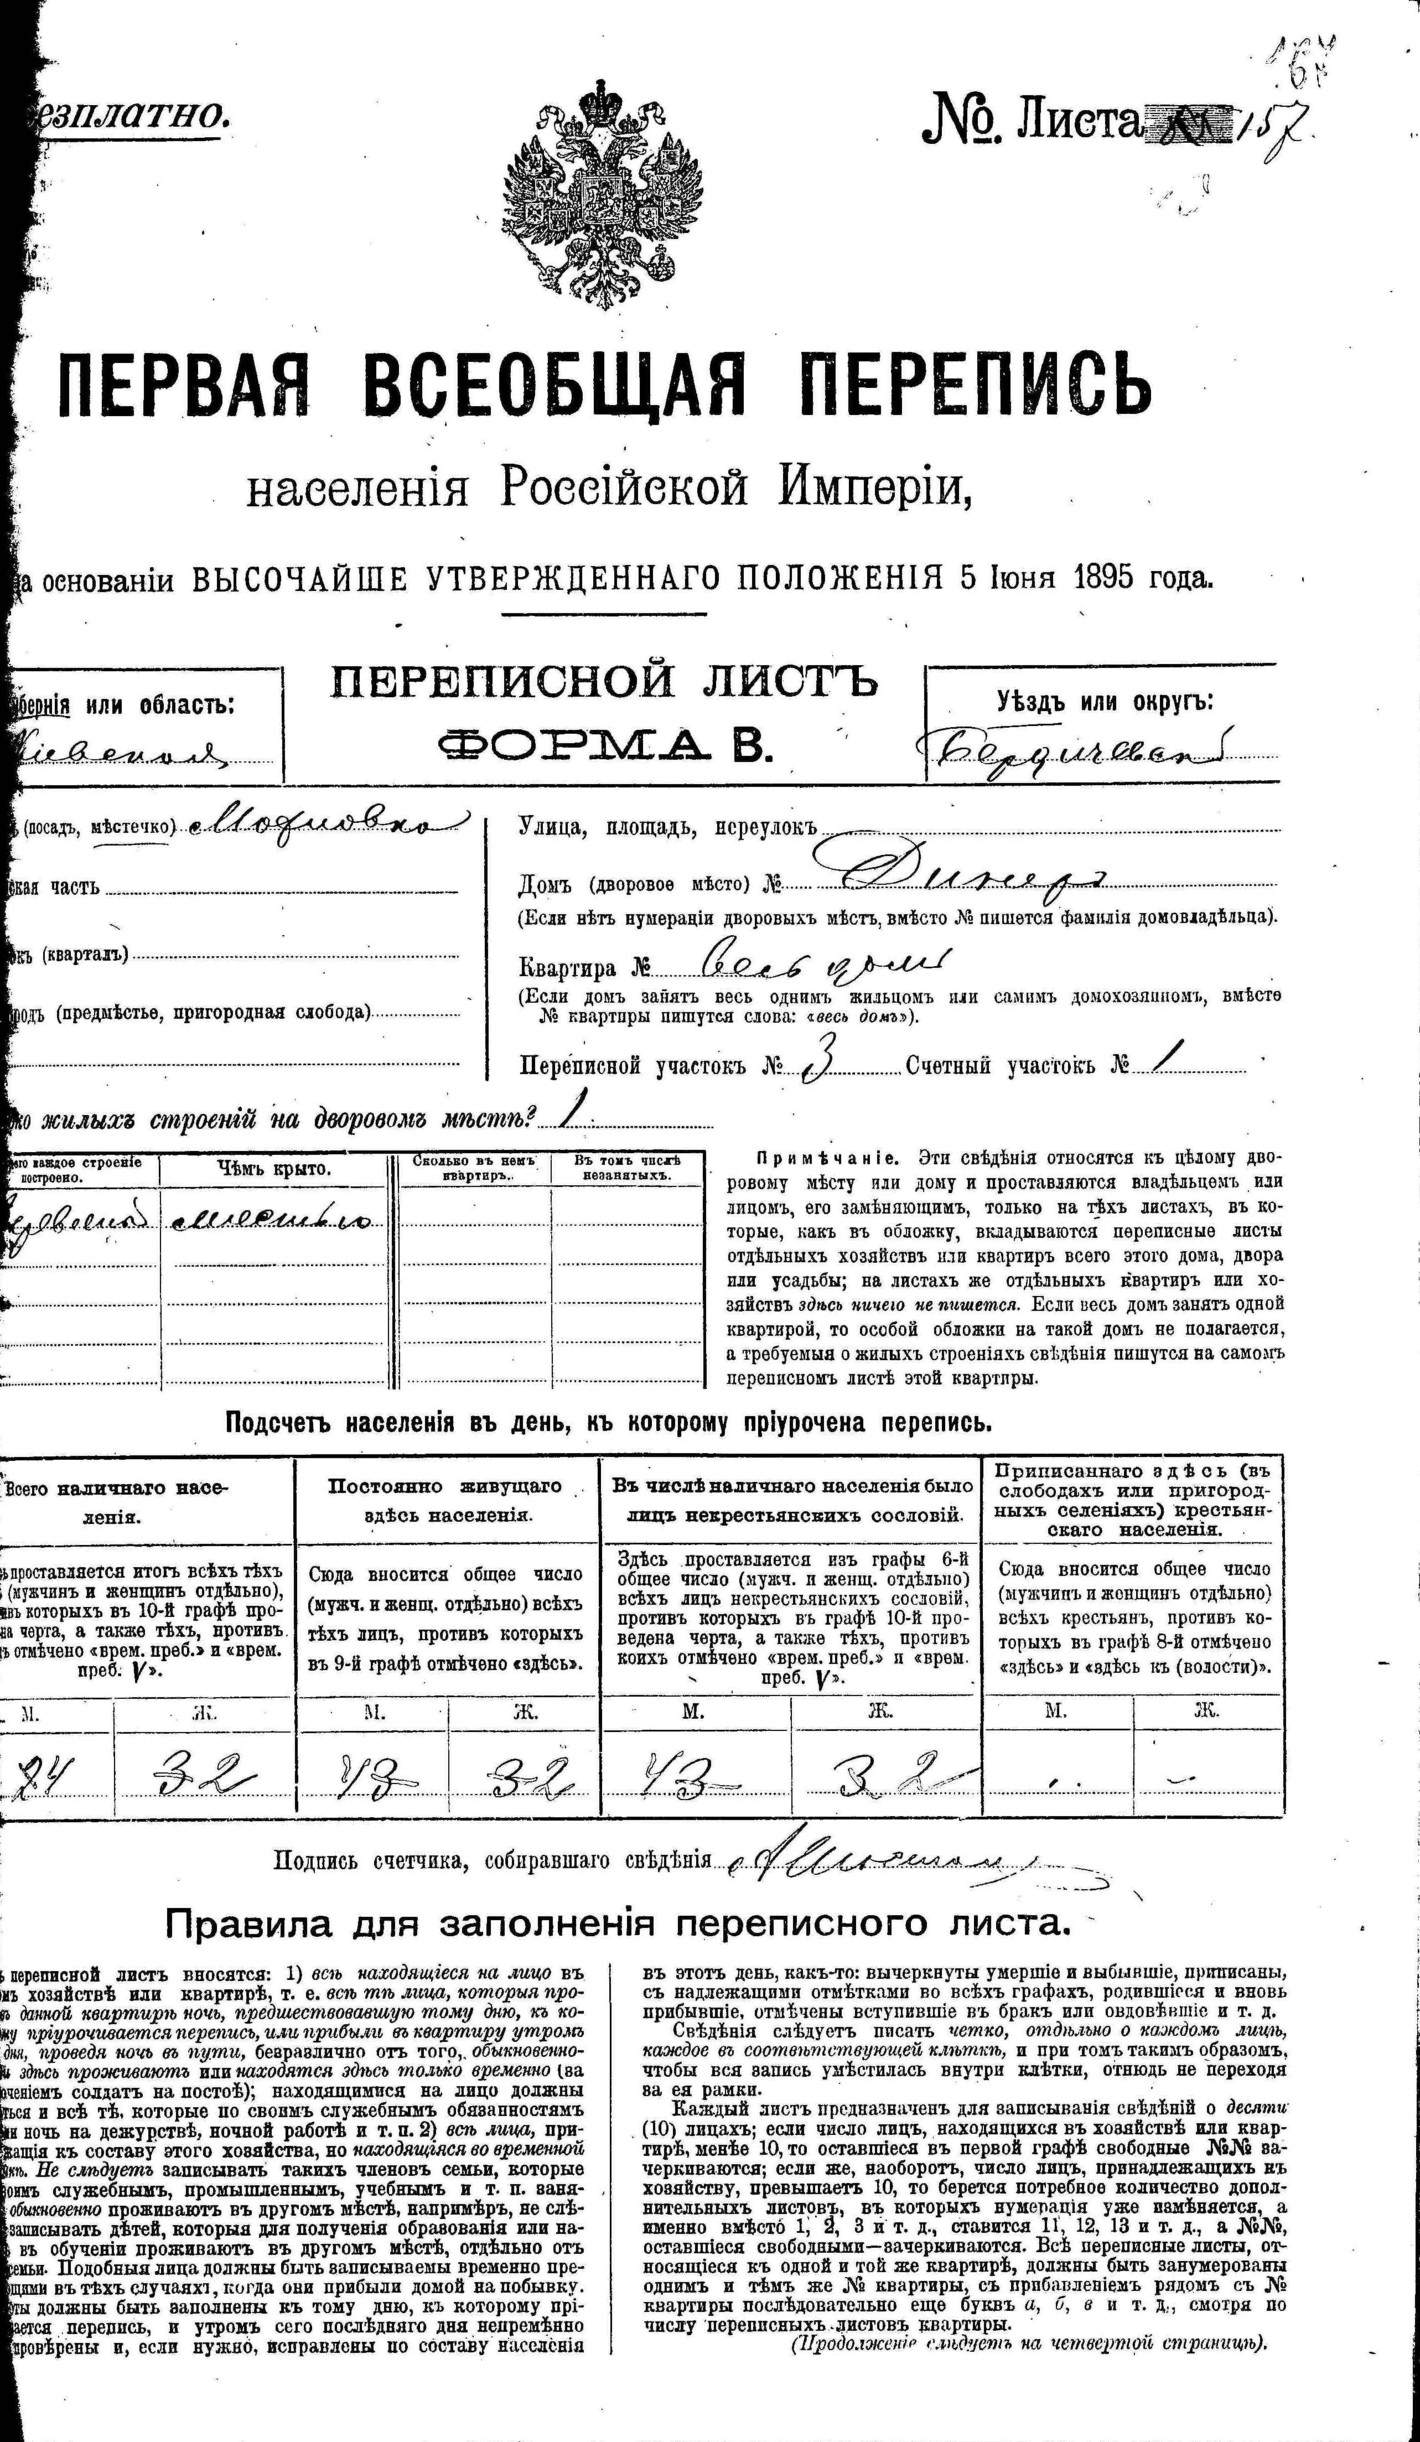 езплатно.
№. Листа 157.
167
ПЕРВАЯ ВСЕОБЩАЯ ПЕРЕПИСЬ
населенія Россійской Имперіи,
а основаніи ВЫСОЧАЙШЕ УТВЕРЖДЕННАГО ПОЛОЖЕНІЯ 5 Іюня 1895 года.
бернія или область:
Кіевская
ПЕРЕПИСНОЙ ЛИСТЪ
ФОРМА В.
Уѣздъ или округъ:
Бердичевскій
(посадъ, мѣстечко) Махновка
ская часть
окъ (кварталъ)
родъ (предмѣстье, пригородная слобода)
Улица, площадь, переулокъ
Домъ (дворовое мѣсто) №
(Если нѣтъ нумераціи дворовыхъ мѣстъ, вмѣсто № пишется фамилія домовладѣльца).
Квартира № Весь домъ
(Если домъ занятъ весь однимъ жильцомъ или самимъ домохозяиномъ, вмѣсто
№ квартиры пишутся слова: «весь домъ»).
Переписной участокъ № 3 Счетный участокъ № 1
ко жилыхъ строеній на дворовомъ мѣстѣ? 1
его каждое строеніе
построено.
Чѣмъ крыто.
Сколько въ немъ
квартиръ.
Въ томъ числѣ
незанятыхъ.
Примѣчаніе. Эти свѣдѣнія относятся къ цѣлому дво-
ровому мѣсту или дому и проставляются владѣльцемъ или
лицомъ, его замѣняющимъ, только на тѣхъ листахъ, въ ко-
торые, какъ въ обложку, вкладываются переписные листы
отдѣльныхъ хозяйствъ или квартиръ всего этого дома, двора
или усадьбы; на листахъ же отдѣльныхъ квартиръ или хо-
зяйствъ здѣсь ничего не пишется. Если весь домъ занятъ одной
квартирой, то особой обложки на такой домъ не полагается,
а требуемыя о жилыхъ строеніяхъ свѣдѣнія пишутся на самомъ
переписномъ листѣ этой квартиры.
Подсчетъ населенія въ день, къ которому пріурочена перепись.
Всего наличнаго насе-
ленія.
Постоянно живущаго
здѣсь населенія.
Въ числѣ наличнаго населенія было
лицъ некрестьянскихъ сословій.
Приписаннаго здѣсь (въ
слободахъ или пригород-
ныхъ селеніяхъ) крестьян-
скаго населенія.
проставляется итогъ всѣхъ тѣхъ
(мужчинъ и женщинъ отдѣльно),
въ которыхъ въ 10-й графѣ про-
на черта, а также тѣхъ, противъ
ъ отмѣчено «врем. преб.» и «врем.
преб. V».
Сюда вносится общее число
(мужч. и женщ. отдѣльно) всѣхъ
тѣхъ лицъ, противъ которыхъ
въ 9-й графѣ отмѣчено «здѣсь».
Здѣсь проставляется изъ графы 6-й
общее число (мужч. и женщ. отдѣльно)
всѣхъ лицъ некрестьянскихъ сословій,
противъ которыхъ въ графѣ 10-й про-
ведена черта, а также тѣхъ, противъ
коихъ отмѣчено «врем. преб.» и «врем.
преб. V».
Сюда вносится общее число
(мужчинъ и женщинъ отдѣльно)
всѣхъ крестьянъ, противъ ко-
торыхъ въ графѣ 8-й отмѣчено
«здѣсь» и «здѣсь къ (волости)».
М. Ж. М. Ж. М. Ж. М. Ж.
24 32 43 32 43 32
Подпись счетчика, собиравшаго свѣдѣнія
Правила для заполненія переписного листа.
переписной листъ вносятся: 1) всѣ находящіеся на лицо въ
мъ хозяйствѣ или квартирѣ, т. е. всѣ тѣ лица, которыя про-
въ данной квартирѣ ночь, предшествовавшую тому дню, къ ко-
му пріурочивается перепись, или прибыли въ квартиру утромъ
дня, проведя ночь въ пути, безразлично отъ того, обыкновенно-
и здѣсь проживаютъ или находятся здѣсь только временно (за
юченіемъ солдатъ на постоѣ); находящимися на лицо должны
ться и всѣ тѣ, которые по своимъ служебнымъ обязанностямъ
и ночь на дежурствѣ, ночной работѣ и т. п. 2) всѣ лица, при-
жащія къ составу этого хозяйства, но находящіяся во временной
чкѣ. Не слѣдуетъ записывать такихъ членовъ семьи, которые
оимъ служебнымъ, промышленнымъ, учебнымъ и т. п. заня-
обыкновенно проживаютъ въ другомъ мѣстѣ, напримѣръ, не слѣ-
записывать дѣтей, которыя для полученія образованія или на-
въ обученіи проживаютъ въ другомъ мѣстѣ, отдѣльно отъ
семьи. Подобныя лица должны быть записываемы временно пре-
щими въ тѣхъ случаяхъ, когда они прибыли домой на побывку.
ты должны быть заполнены къ тому дню, къ которому прі-
ается перепись, и утромъ сего послѣдняго дня непремѣнно
провѣрены и, если нужно, исправлены по составу населенія
въ этотъ день, какъ-то: вычеркнуты умершіе и выбывшіе, приписаны,
съ надлежащими отмѣтками во всѣхъ графахъ, родившіеся и вновь
прибывшіе, отмѣчены вступившіе въ бракъ или овдовѣвшіе и т. д.
Свѣдѣнія слѣдуетъ писать четко, отдѣльно о каждомъ лицѣ,
каждое въ соотвѣтствующей клѣткѣ, и при томъ такимъ образомъ,
чтобы вся запись умѣстилась внутри клѣтки, отнюдь не переходя
за ея рамки.
Каждый листъ предназначенъ для записыванія свѣдѣній о десяти
(10) лицахъ; если число лицъ, находящихся въ хозяйствѣ или квар-
тирѣ, менѣе 10, то оставшіеся въ первой графѣ свободные №№ за-
черкиваются; если же, наоборотъ, число лицъ, принадлежащихъ къ
хозяйству, превышаетъ 10, то берется потребное количество допол-
нительныхъ листовъ, въ которыхъ нумерація уже измѣняется, а
именно вмѣсто 1, 2, 3 и т. д., ставится 11, 12, 13 и т. д., а №№,
оставшіеся свободными—зачеркиваются. Всѣ переписные листы, от-
носящіеся къ одной и той же квартирѣ, должны быть занумерованы
однимъ и тѣмъ же № квартиры, съ прибавленіемъ рядомъ съ №
квартиры послѣдовательно еще буквъ а, б, в и т. д., смотря по
числу переписныхъ листовъ квартиры.
(Продолженіе слѣдуетъ на четвертой страницѣ).